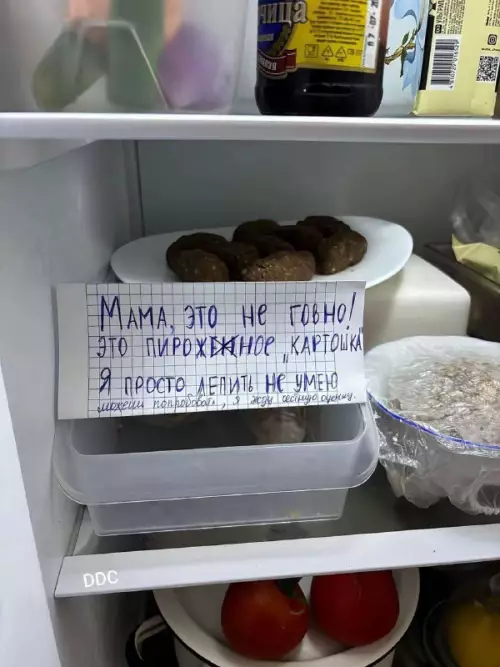 чица
МАМА, ЭТО НЕ ГОВНО!
ЭТО ПИРОЖЕНОЕ „КАРТОШКА"
Я ПРОСТО ЛЕПИТЬ НЕ УМЕЮ
можешь попробовать, я жду честную оценку.
DDC